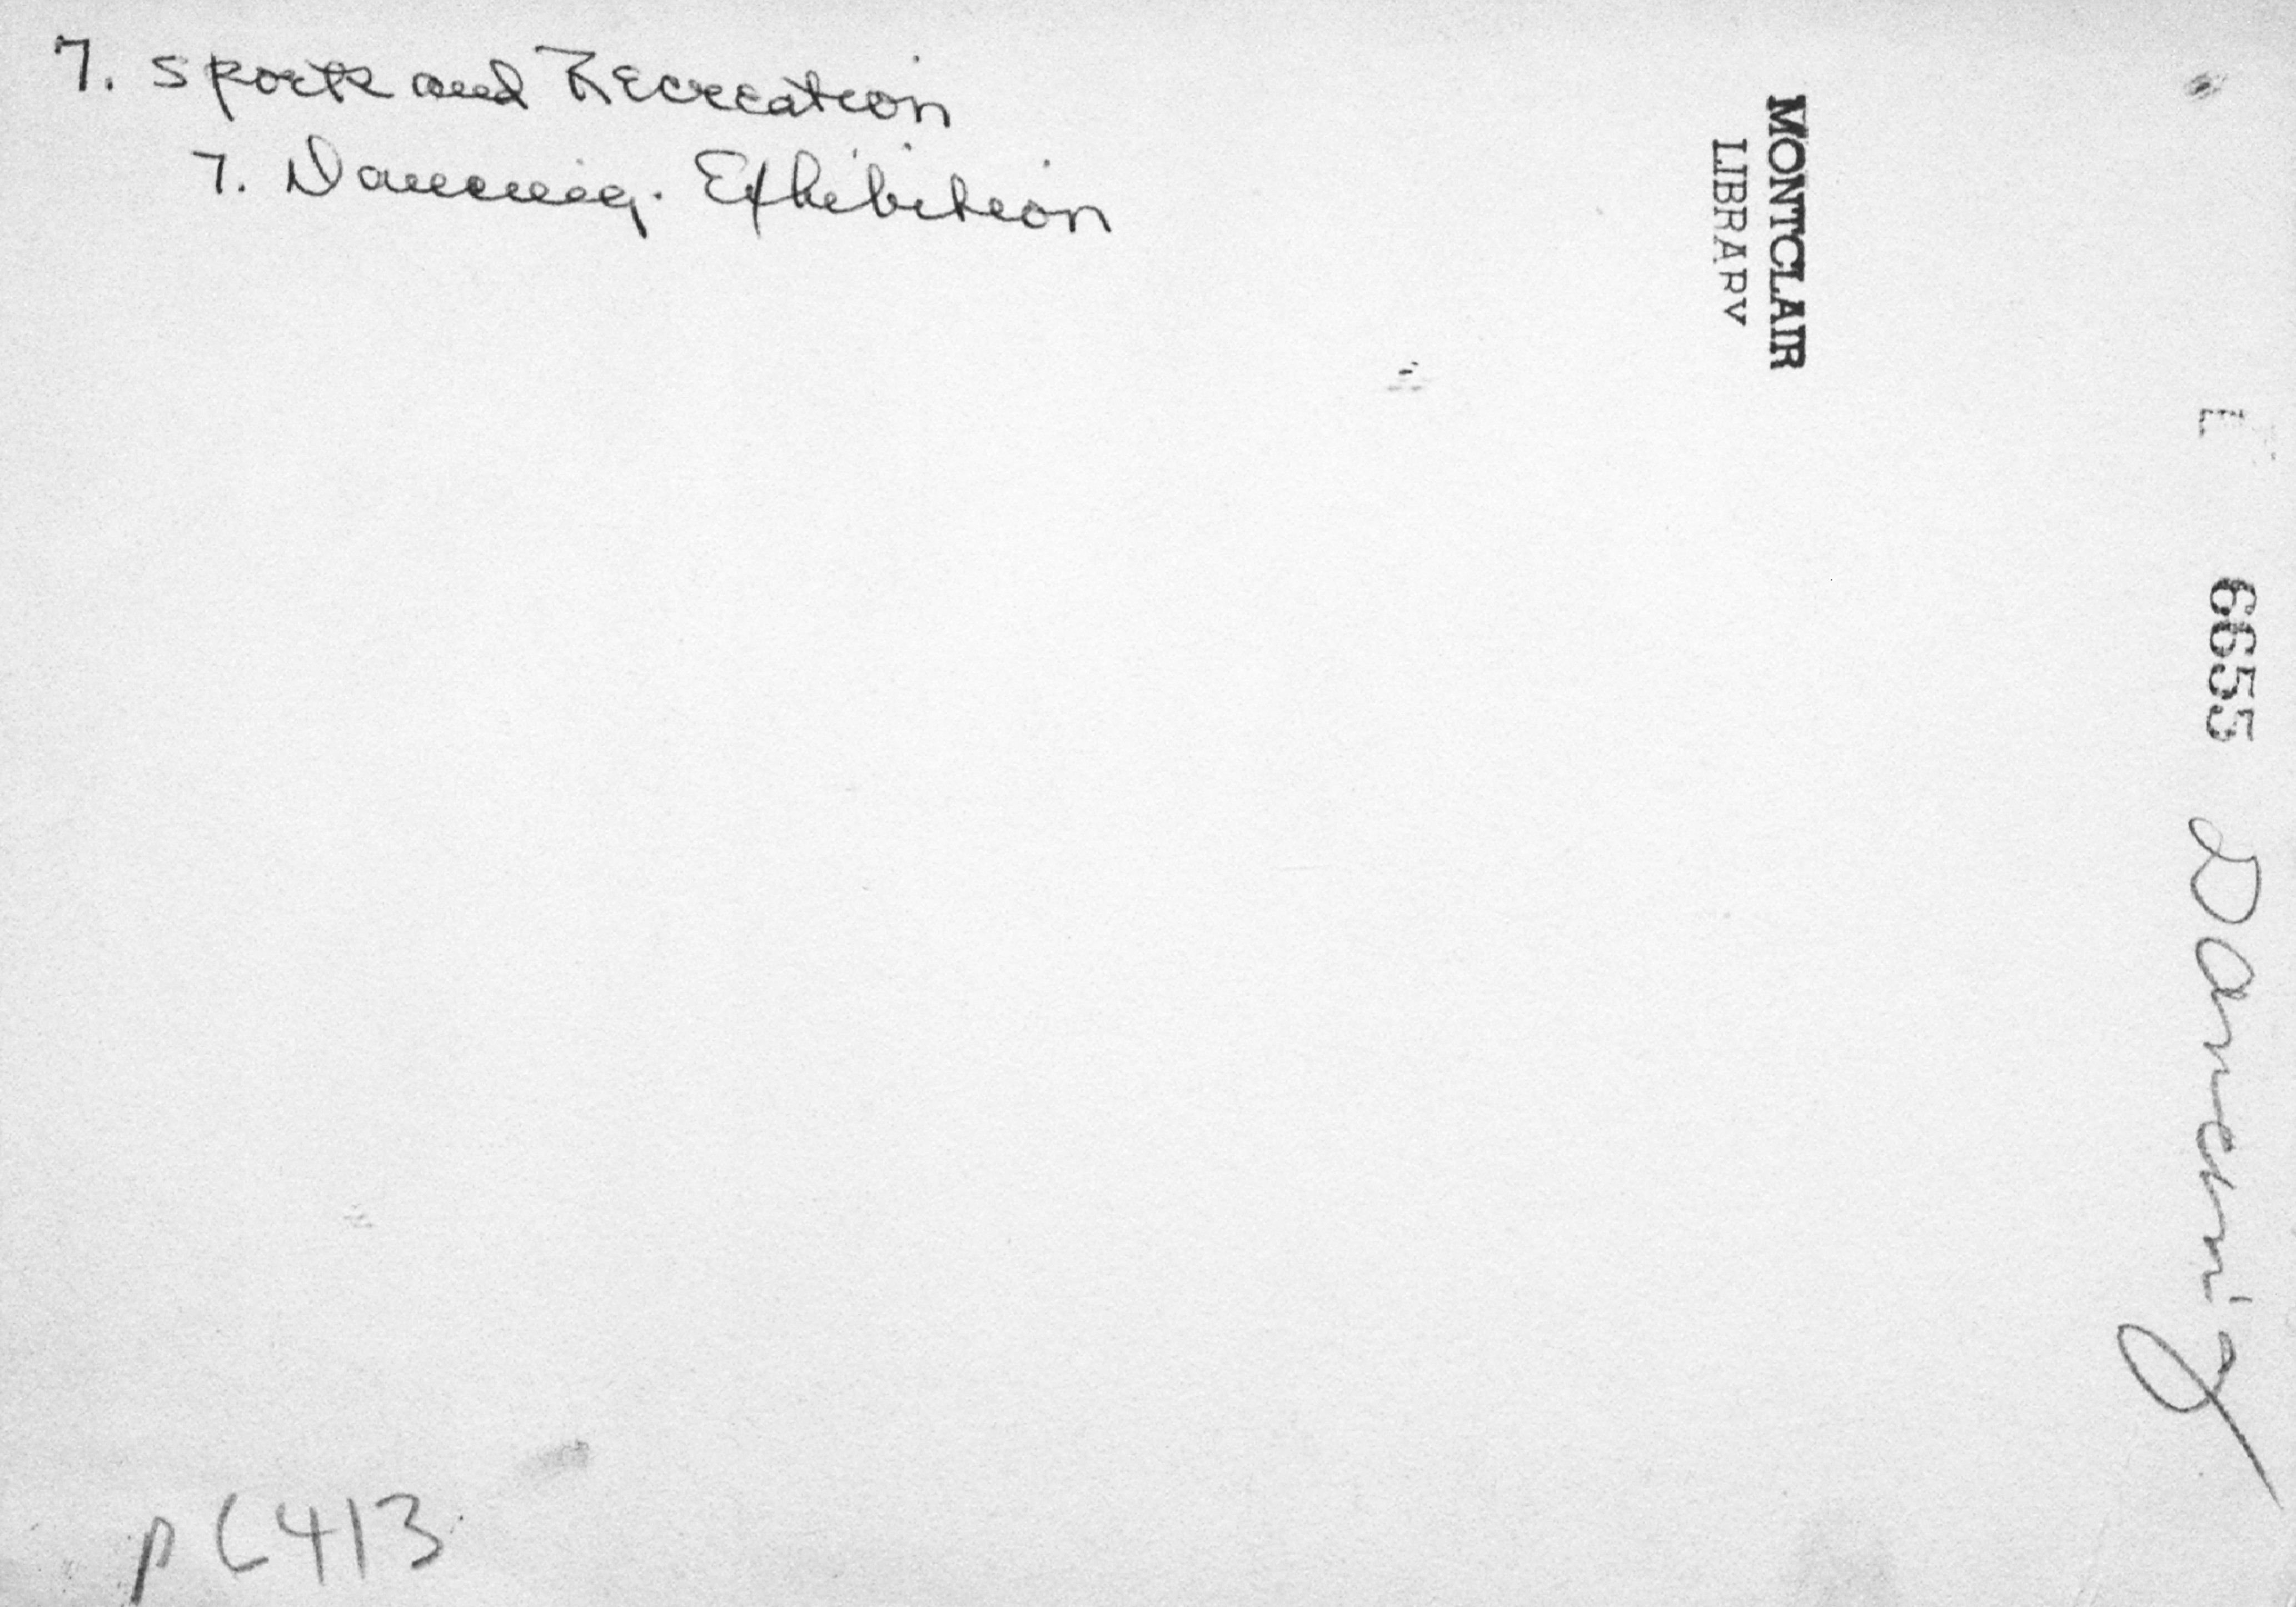 7. Sports and Recreation
7. Dancing. Exhibition
MONTCLAIR
LIBRARY
L
6655 Dancing
pC413